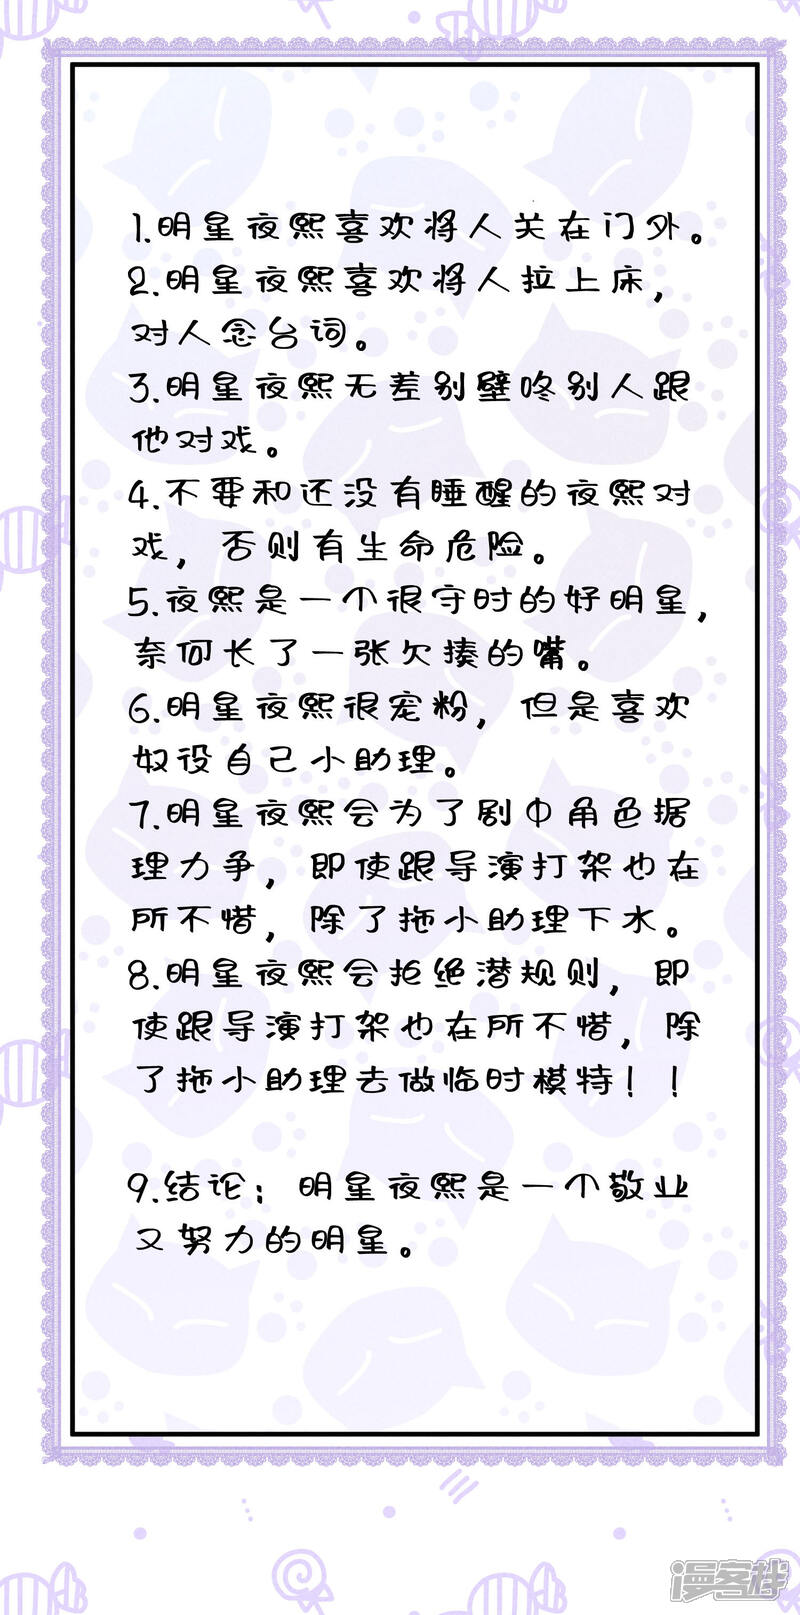 1.明星夜熙喜欢将人关在门外。
2.明星夜熙喜欢将人拉上床,
对人念台词。
3.明星夜熙无差别壁咚别人跟
他对戏。
4.不要和还没有睡醒的夜熙对
戏,否则有生命危险。
5.夜熙是一个很守时的好明星,
奈何长了一张欠揍的嘴。
6.明星夜熙很宠粉,但是喜欢
奴役自己小助理。
7.明星夜熙会为了剧中角色据
理力争,即使跟导演打架也在
所不惜,除了拖小助理下水。
8.明星夜熙会拒绝潜规则,即
使跟导演打架也在所不惜,除
了拖小助理去做临时模特!!
9.结论:明星夜熙是一个敬业
又努力的明星。
漫客栈